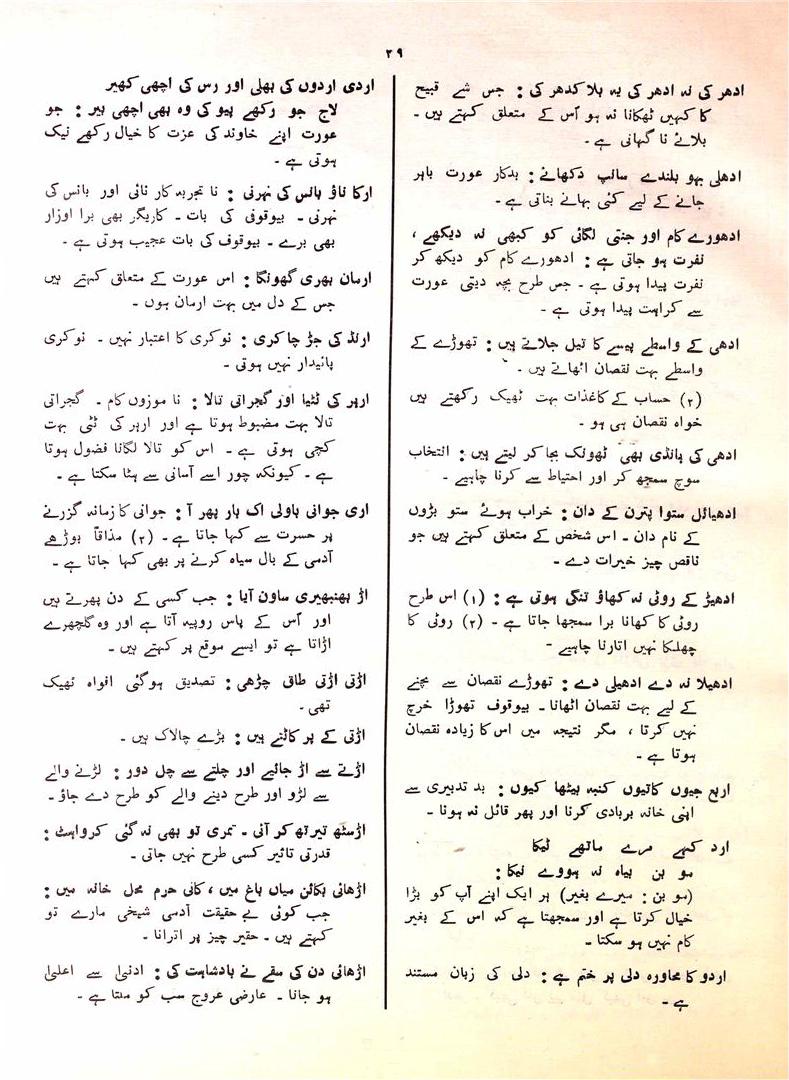 ۲۹
ادھر کی نہ ادھر کی یہ بلا کدھر کی : جس شے قبیح
کا کہیں ٹھکانا نہ ہو اُس کے متعلق کہتے ہیں ۔
بلائے نا گہانی ہے ۔
ادھلی بہو بلنڈے سانپ دکھانے : بدکار عورت باہر
جانے کے لیے کئی بہانے بناتی ہے ۔
ادھورے کام اور جنتی لگائی کو کبھی نہ دیکھے ،
نفرت ہو جاتی ہے : ادھورے کام کو دیکھ کر
نفرت پیدا ہوتی ہے ۔ جس طرح بچہ دیتی عورت
سے کراہت پیدا ہوتی ہے ۔
ادھی کے واسطے پیسے کا تیل جلاتے ہیں : تھوڑے کے
واسطے بہت نقصان اٹھاتے ہیں ۔
(۲) حساب کے کاغذات بہت ٹھیک رکھتے ہیں
خواہ نقصان ہی ہو ۔
ادھی کی ہانڈی بھی ٹھونک بجا کر لیتے ہیں : انتخاب
سوچ سمجھ کر اور احتیاط سے کرنا چاہیے ۔
ادھیائل ستوا پترن کے دان : خراب ہوئے ستو بڑوں
کے نام دان ۔ اس شخص کے متعلق کہتے ہیں جو
ناقص چیز خیرات دے ۔
ادھیڑ کے روٹی نہ کھاؤ تنگی ہوتی ہے : (۱) اس طرح
روٹی کا کھانا برا سمجھا جاتا ہے ۔ (۲) روٹی کا
چھلکا نہیں اتارنا چاہیے ۔
ادھیلا نہ دے ادھیلی دے : تھوڑے نقصان سے بچنے
کے لیے بہت نقصان اٹھانا ۔ بیوقوف تھوڑا خرچ
نہیں کرتا ، مگر نتیجہ میں اس کا زیادہ نقصان
ہوتا ہے ۔
اربع جیوں کاتیوں کنبہ بیٹھا کیوں : بد تدبیری سے
اپنی خانہ بربادی کرنا اور پھر قائل نہ ہونا ۔
ارد کہے مرے ماتھے ٹیکا
مو بن بیاہ نہ ہووے نیکا :
(مو بن : میرے بغیر) ہر ایک اپنے آپ کو بڑا
خیال کرتا ہے اور سمجھتا ہے کہ اس کے بغیر
کام نہیں ہو سکتا ۔
اردو کا محاورہ دلی پر ختم ہے : دلی کی زبان مستند
ہے ۔
اردی اردوں کی بھلی اور رس کی اچھی کھیر
لاج جو رکھے پیو کی وہ بھی اچھی ہیر : جو
عورت اپنے خاوند کی عزت کا خیال رکھے نیک
ہوتی ہے ۔
ارکا ناؤ بانس کی نہرنی : نا تجربہ کار نائی اور بانس کی
نہرنی ۔ بیوقوفی کی بات ۔ کاریگر بھی برا اوزار
بھی برے ۔ بیوقوف کی بات عجیب ہوتی ہے ۔
ارمان بھری گھونگا : اس عورت کے متعلق کہتے ہیں
جس کے دل میں بہت ارمان ہوں ۔
ارنڈ کی جڑ چاکری : نوکری کا اعتبار نہیں ۔ نوکری
پائیدار نہیں ہوتی ۔
ارہر کی ٹٹیا اور گجراتی تالا : نا موزوں کام ۔ گجراتی
تالا بہت مضبوط ہوتا ہے اور ارہر کی ٹٹی بہت
کچی ہوتی ہے ۔ اس کو تالا لگانا فضول ہوتا
ہے ۔ کیونکہ چور اسے آسانی سے ہٹا سکتا ہے ۔
اری جوانی باولی اک بار پھر آ : جوانی کا زمانہ گزرنے
پر حسرت سے کہا جاتا ہے ۔ (۲) مذاقاً بوڑھے
آدمی کے بال سیاہ کرنے پر بھی کہا جاتا ہے ۔
اڑ بھنبھیری ساون آیا : جب کسی کے دن پھرتے ہیں
اور اُس کے پاس روپیہ آتا ہے اور وہ گلچھرے
اڑاتا ہے تو ایسے موقع پر کہتے ہیں ۔
اڑتی اڑتی طاق چڑھی : تصدیق ہوگئی افواہ ٹھیک
تھی ۔
اڑتی کے پر کاٹتے ہیں : بڑے چالاک ہیں ۔
اڑتے سے اڑ جائیے اور چلتے سے چل دور : لڑنے والے
سے لڑو اور طرح دینے والے کو طرح دے جاؤ ۔
اڑسٹھ تیرتھ کر آئی ۔ تمری تو بھی نہ گئی کرواہٹ :
قدرتی تاثیر کسی طرح نہیں جاتی ۔
اڑھائی بکائن میاں باغ میں ، کانی حرم محل خانہ میں :
جب کوئی بے حقیقت آدمی شیخی مارے تو
کہتے ہیں ۔ حقیر چیز پر اترانا ۔
اڑھائی دن کی سقے نے بادشاہت کی : ادنیٰ سے اعلیٰ
ہو جانا ۔ عارضی عروج سب کو ملتا ہے ۔